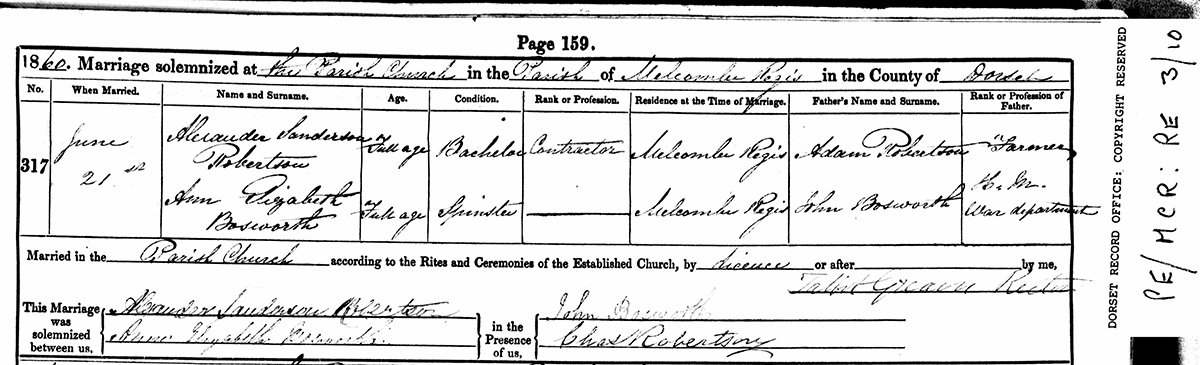 Page 159.
1860. Marriage solemnized at the Parish Church in the Parish of Melcombe Regis in the County of Dorset
No. When Married. Name and Surname. Age. Condition. Rank or Profession. Residence at the Time of Marriage. Father's Name and Surname. Rank or Profession of Father.
317 June 21st Alexander Sanderson Robertson Full age Bachelor Contractor Melcombe Regis Adam Robertson Farmer
Ann Elizabeth Bosworth Full age Spinster Melcombe Regis John Bosworth H. M. War department
Married in the Parish Church according to the Rites and Ceremonies of the Established Church, by Licence or after by me,
Talbot Greaves Rector
This Marriage was solemnized between us, Alexander Sanderson Robertson
Anne Elizabeth Bosworth
in the Presence of us, John Bosworth
Chas Robertson
DORSET RECORD OFFICE: COPYRIGHT RESERVED
PE/MCR: RE 3/10